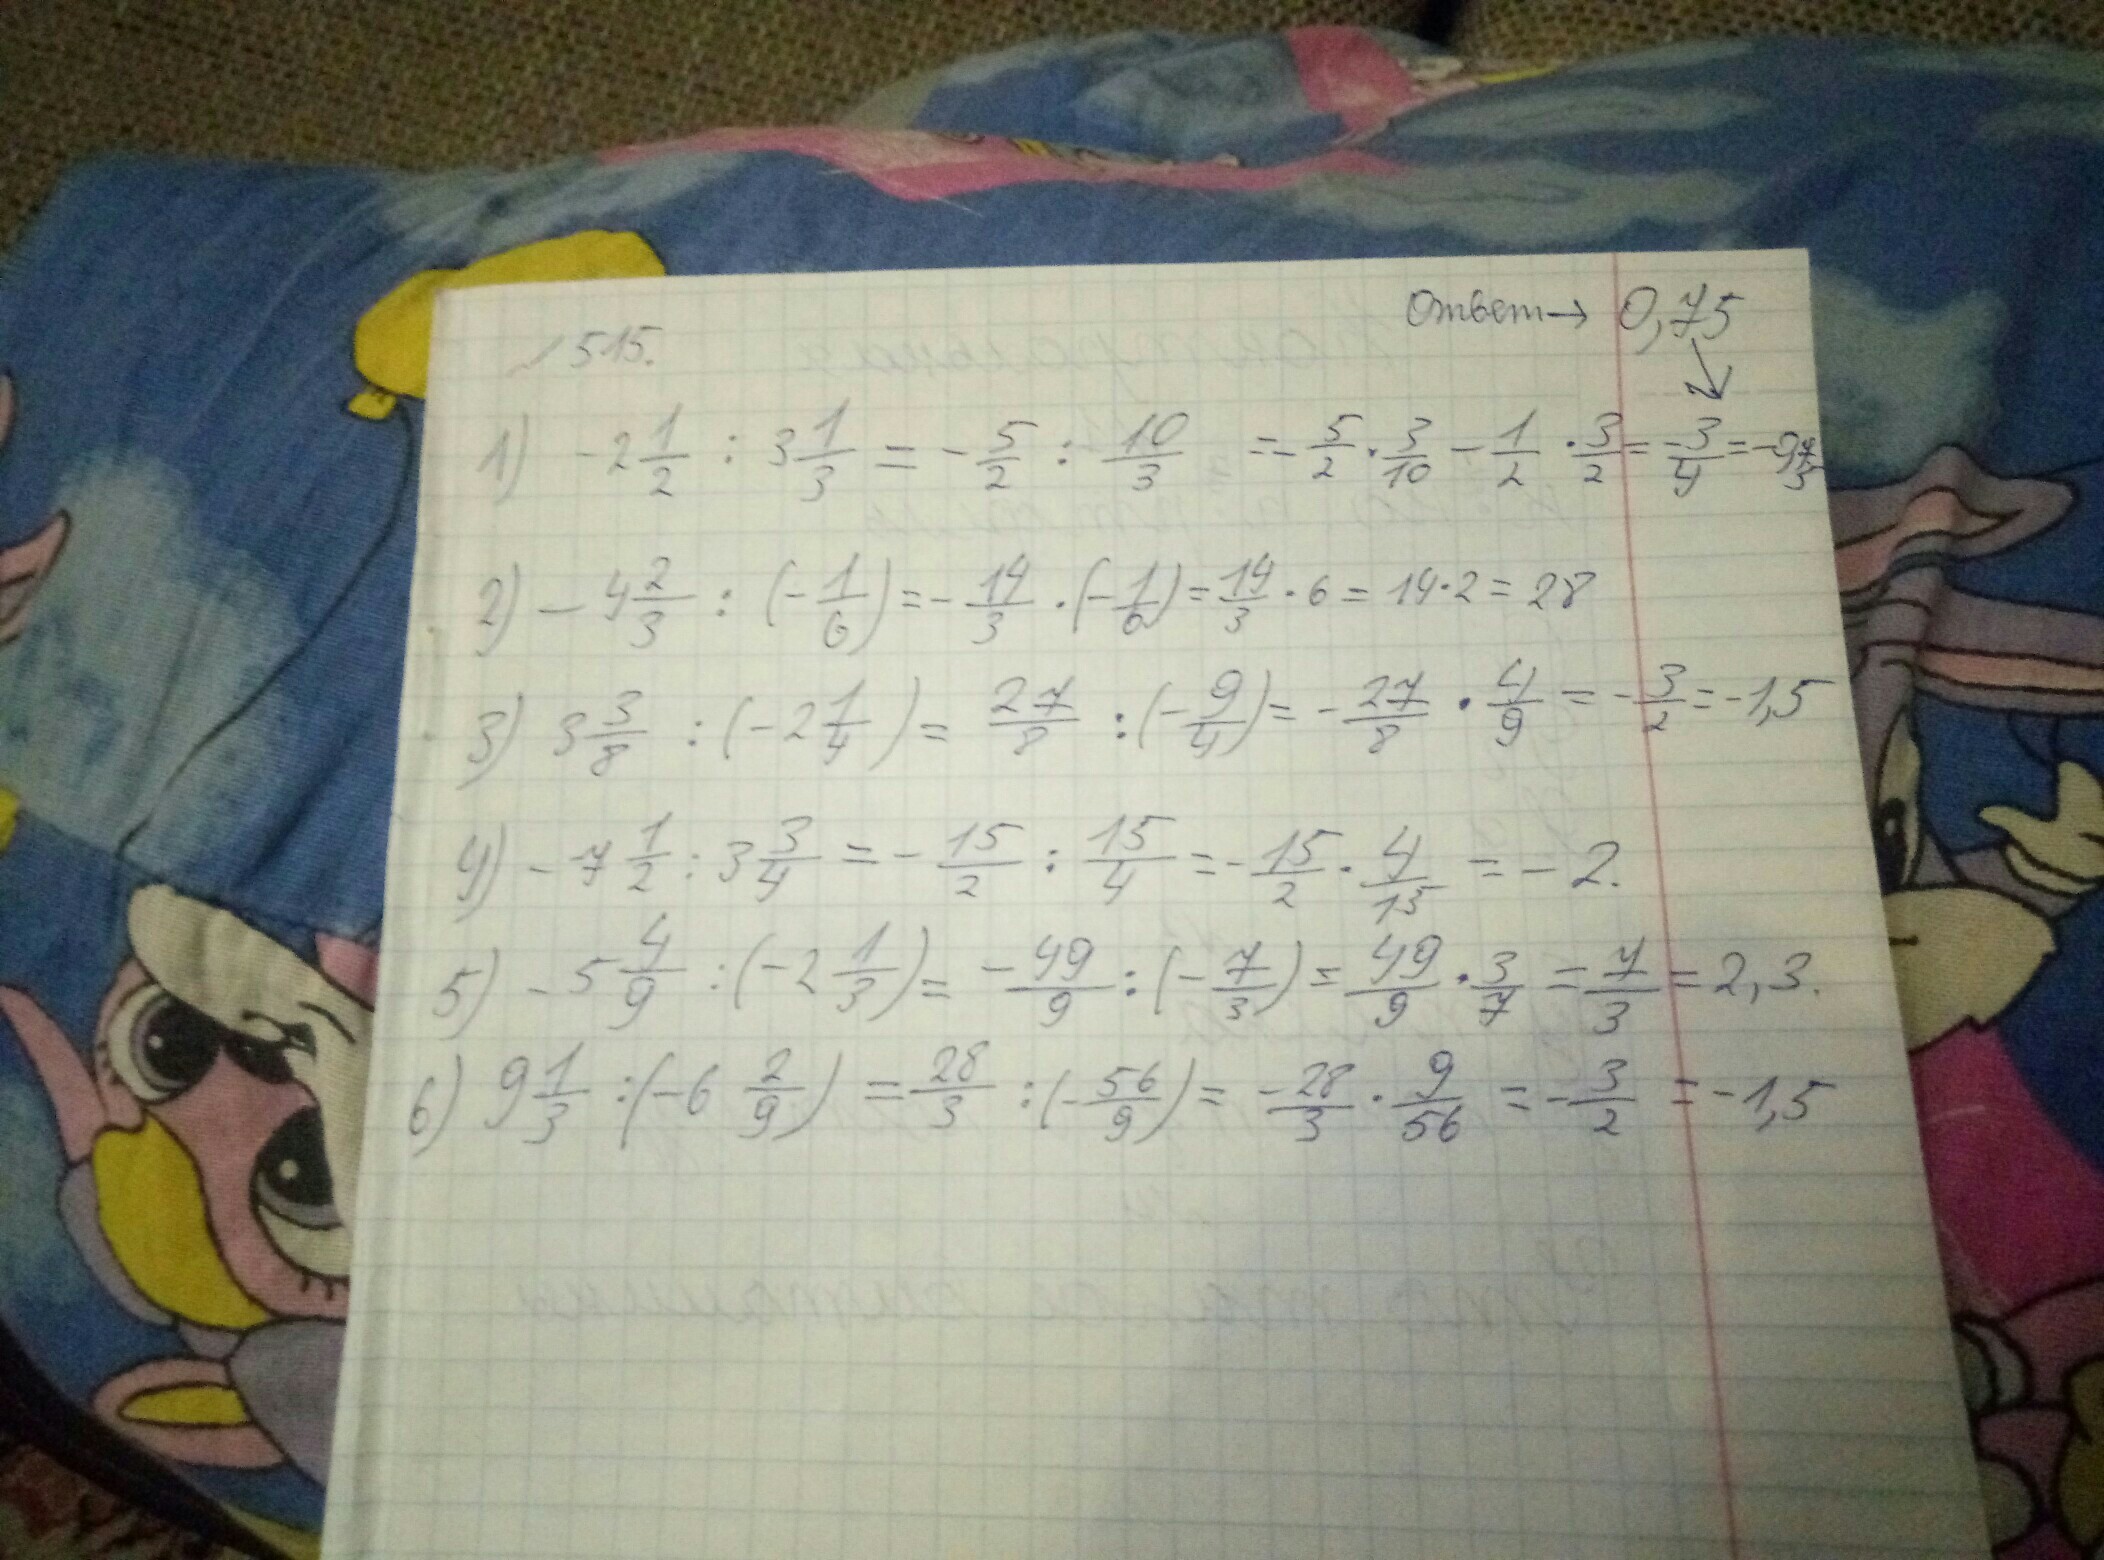 Ответ→ 0,75
№515.
1) -2 1/2 : 3 1/3 = -5/2 : 10/3 = -5/2 · 3/10 - 1/2 · 3/2 = -3/4 = -0,75
2) -4 2/3 : (-1/6) = -14/3 · (-1/6) = 14/3 · 6 = 14·2 = 28
3) 3 3/8 : (-2 1/4) = 27/8 : (-9/4) = -27/8 · 4/9 = -3/2 = -1,5
4) -7 1/2 : 3 3/4 = -15/2 : 15/4 = -15/2 · 4/15 = -2.
5) -5 4/9 : (-2 1/3) = -49/9 : (-7/3) = 49/9 · 3/7 = 7/3 = 2,3.
6) 9 1/3 : (-6 2/9) = 28/3 : (-56/9) = -28/3 · 9/56 = -3/2 = -1,5